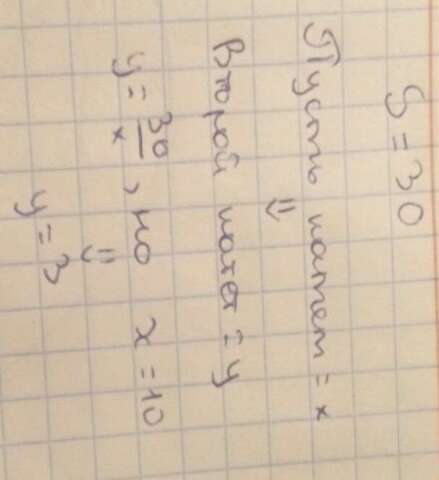 S = 30
Пусть катет = x
⇓
Второй катет = y
y = 30/x , но x = 10
⇓
y = 3